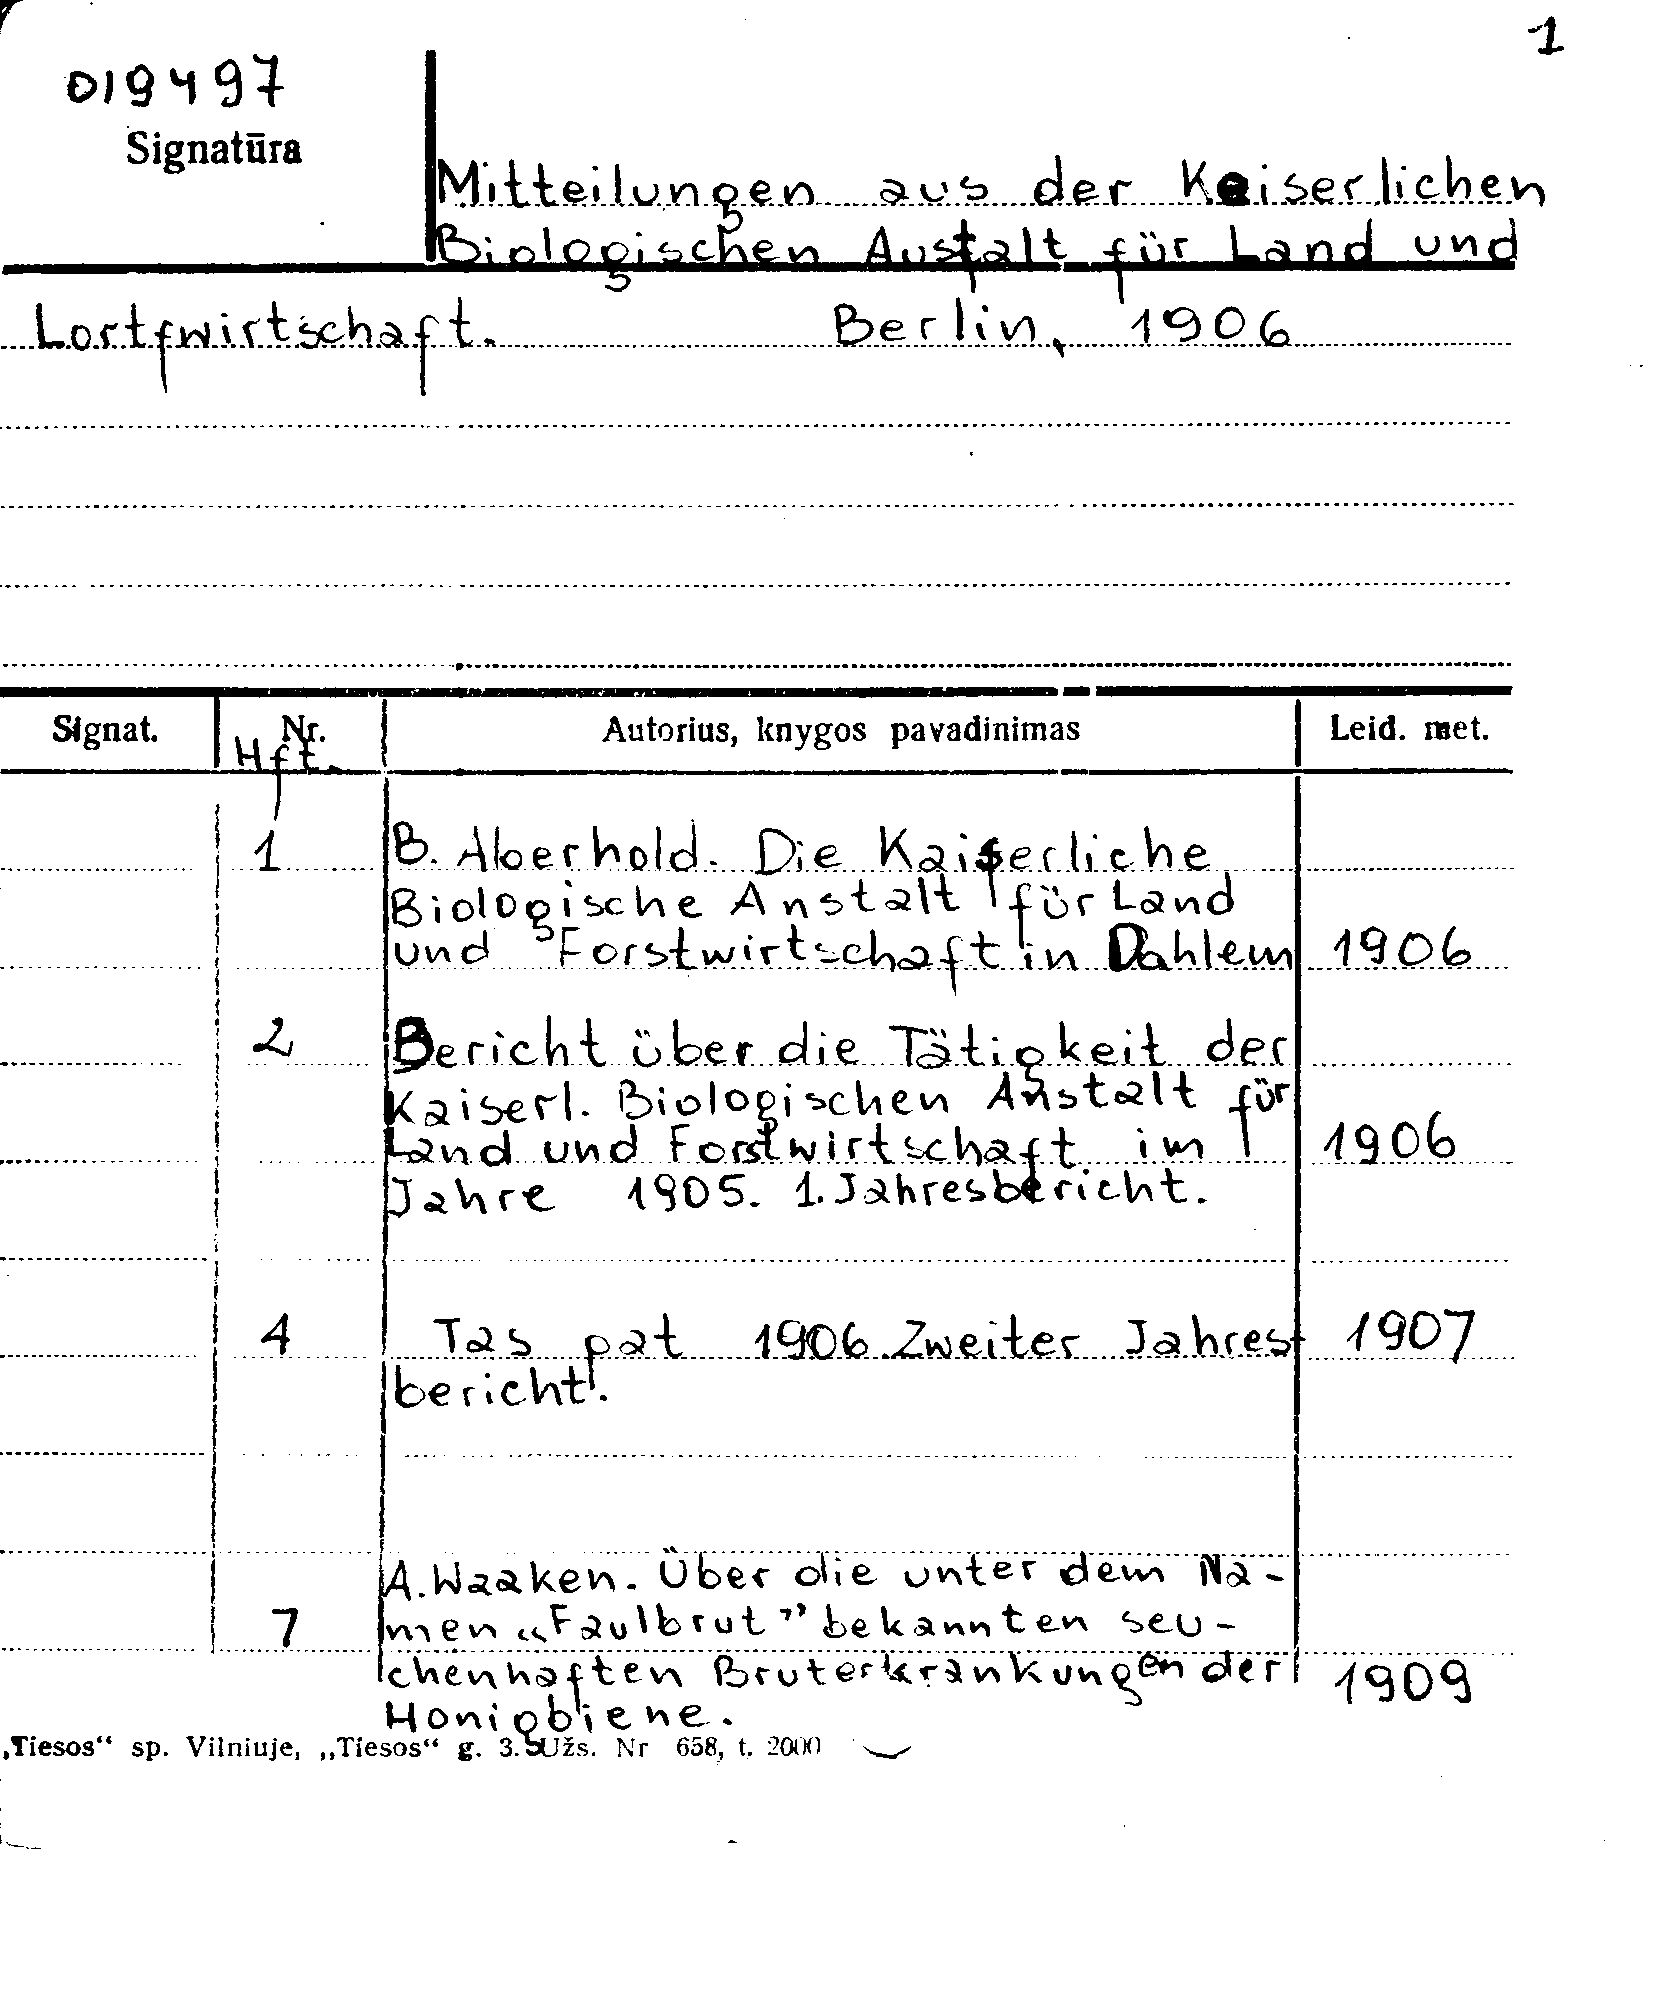 1
019497
Signatūra
Mitteilungen aus der Keiserlichen
Biologischen Austalt für Land und
Lortfwirtschaft. Berlin, 1906
Signat. Nr. Autorius, knygos pavadinimas Leid. met.
Hft.
1 B. Aberhold. Die Kaiserliche
Biologische Anstalt für Land
und Forstwirtschaft in Dahlem 1906
2 Bericht über die Tätigkeit der
Kaiserl. Biologischen Anstalt für
Land und Forstwirtschaft im 1906
Jahre 1905. 1. Jahresbericht.
4 Tas pat 1906. Zweiter Jahres- 1907
bericht.
A. Waaken. Über die unter dem Na-
7 men „Faulbrut” bekannten seu-
chenhaften Bruterkrankungen der 1909
Honigbiene.
„Tiesos“ sp. Vilniuje, „Tiesos“ g. 3. Užs. Nr 658, t. 2000